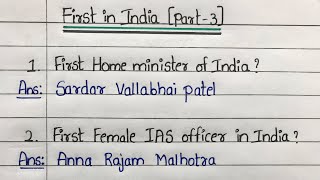 First in India [Part-3]
1. First Home minister of India?
Ans: Sardar Vallabhai patel
2. First Female IAS officer in India?
Ans: Anna Rajam Malhotra